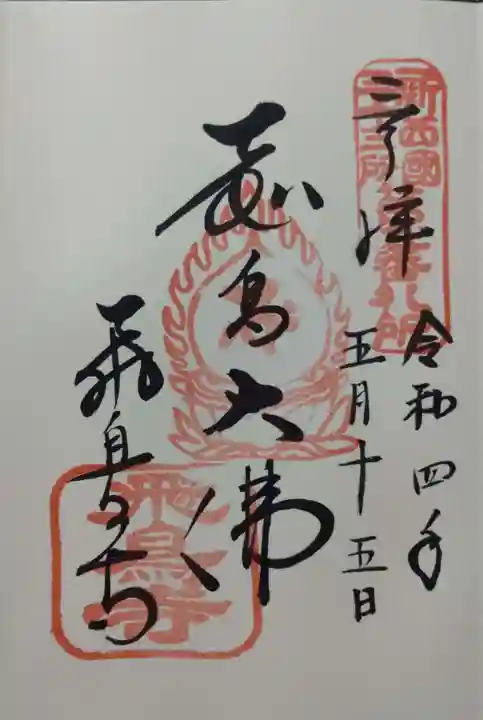 奉拝
令和四年
五月十五日
飛鳥大佛
飛鳥寺
新西國
三十三所
第九番札所
飛鳥寺